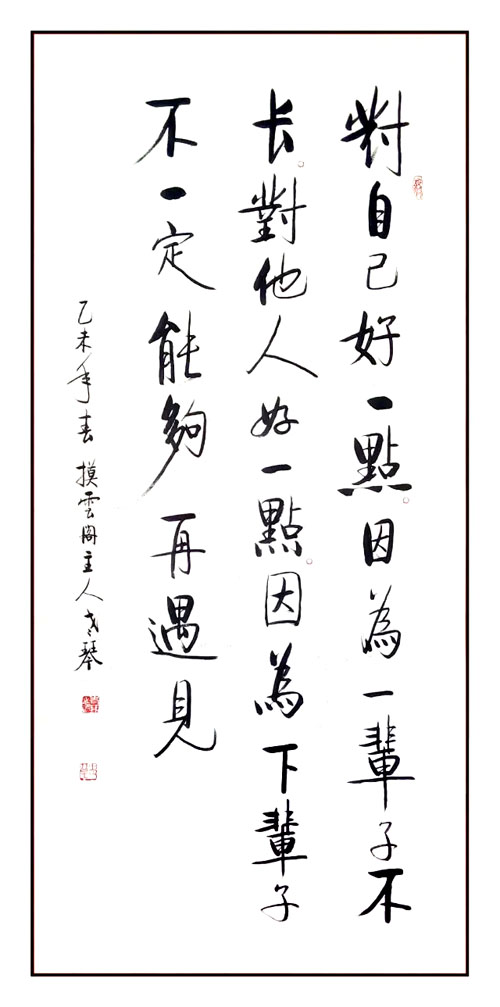 對自己好一點。因為一輩子不
长。對他人好一點。因為下輩子
不一定能夠再遇見
乙未年春摸雲閣主人老琴